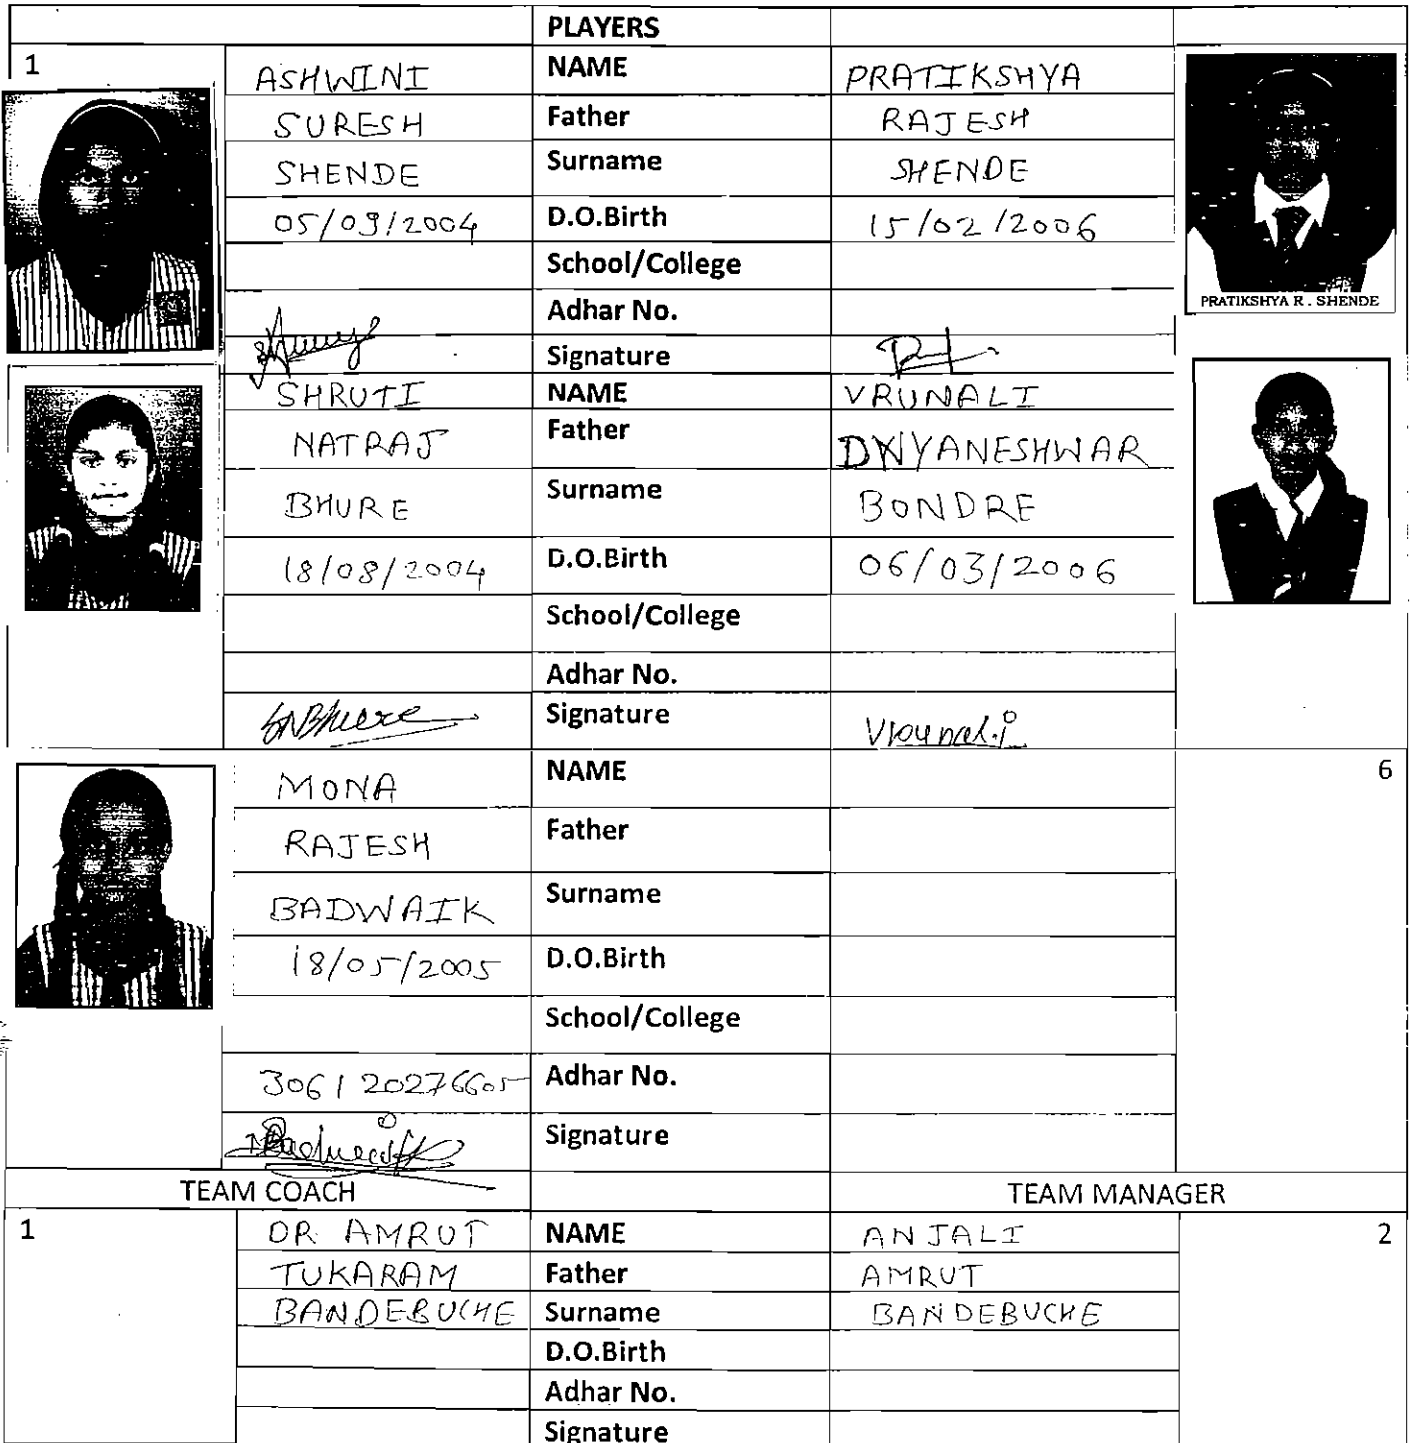 PLAYERS
1 ASHWINI NAME PRATIKSHYA
SURESH Father RAJESH
SHENDE Surname SHENDE
05/09/2004 D.O.Birth 15/02/2006
School/College
Adhar No.
PRATIKSHYA R. SHENDE
Signature
SHRUTI NAME VRUNALI
NATRAJ Father DNYANESHWAR
BHURE Surname BONDRE
18/08/2004 D.O.Birth 06/03/2006
School/College
Adhar No.
SNBhure Signature Vrunali
MONA NAME 6
RAJESH Father
BADWAIK Surname
18/05/2005 D.O.Birth
School/College
3061 20276605 Adhar No.
Signature
TEAM COACH TEAM MANAGER
1 DR. AMRUT NAME ANJALI 2
TUKARAM Father AMRUT
BANDEBUCHE Surname BANDEBUCHE
D.O.Birth
Adhar No.
Signature